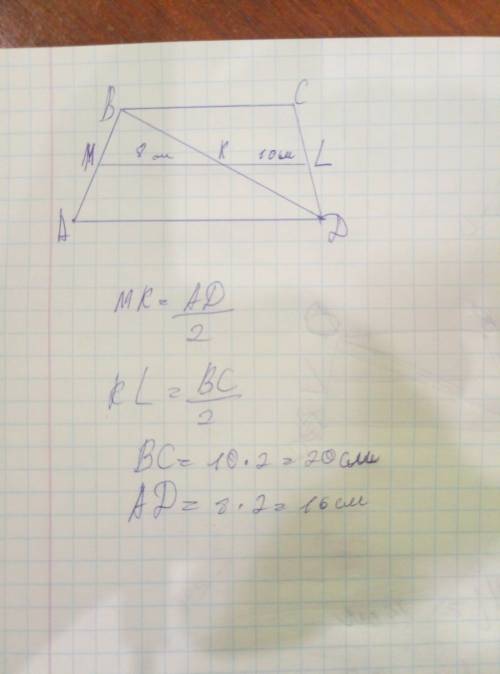 B C
M 8 см K 10 см L
A D
MK = AD/2
KL = BC/2
BC = 10 · 2 = 20 см
AD = 8 · 2 = 16 см